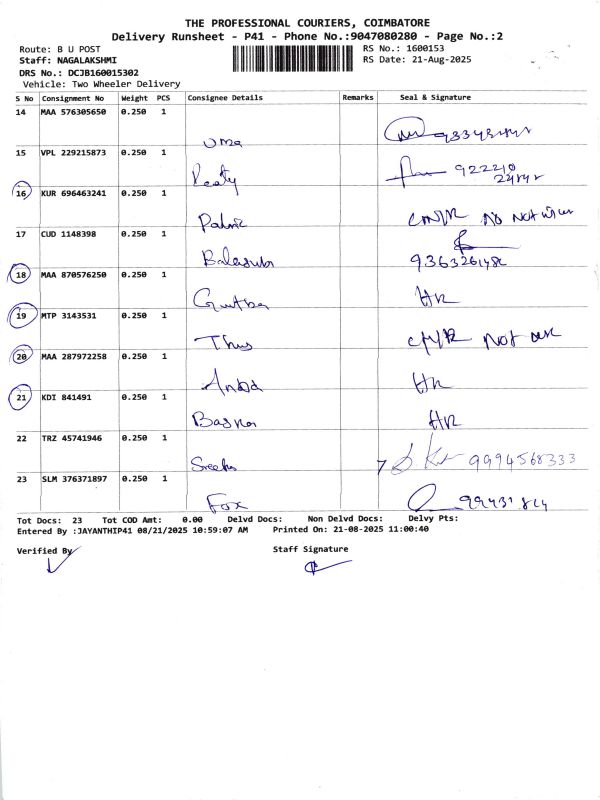 THE PROFESSIONAL COURIERS, COIMBATORE
Delivery Runsheet - P41 - Phone No.:9047080280 - Page No.:2
Route: B U POST
RS No.: 1600153
Staff: NAGALAKSHMI
RS Date: 21-Aug-2025
DRS No.: DCJB160015302
Vehicle: Two Wheeler Delivery
S No Consignment No Weight PCS Consignee Details Remarks Seal & Signature
14 MAA 576305650 0.250 1
Uma
15 VPL 229215873 0.250 1
Ready 922210
16 KUR 696463241 0.250 1
No Not
17 CUD 1148398 0.250 1
18 MAA 870576250 0.250 1
HR
19 MTP 3143531 0.250 1
Thus Not
20 MAA 287972258 0.250 1
HR
21 KDI 841491 0.250 1
Baskar HR
22 TRZ 45741946 0.250 1
9994568333
23 SLM 376371897 0.250 1
Fox
Tot Docs: 23 Tot COD Amt: 0.00 Delvd Docs: Non Delvd Docs: Delvy Pts:
Entered By :JAYANTHIP41 08/21/2025 10:59:07 AM Printed On: 21-08-2025 11:00:40
Verified By Staff Signature